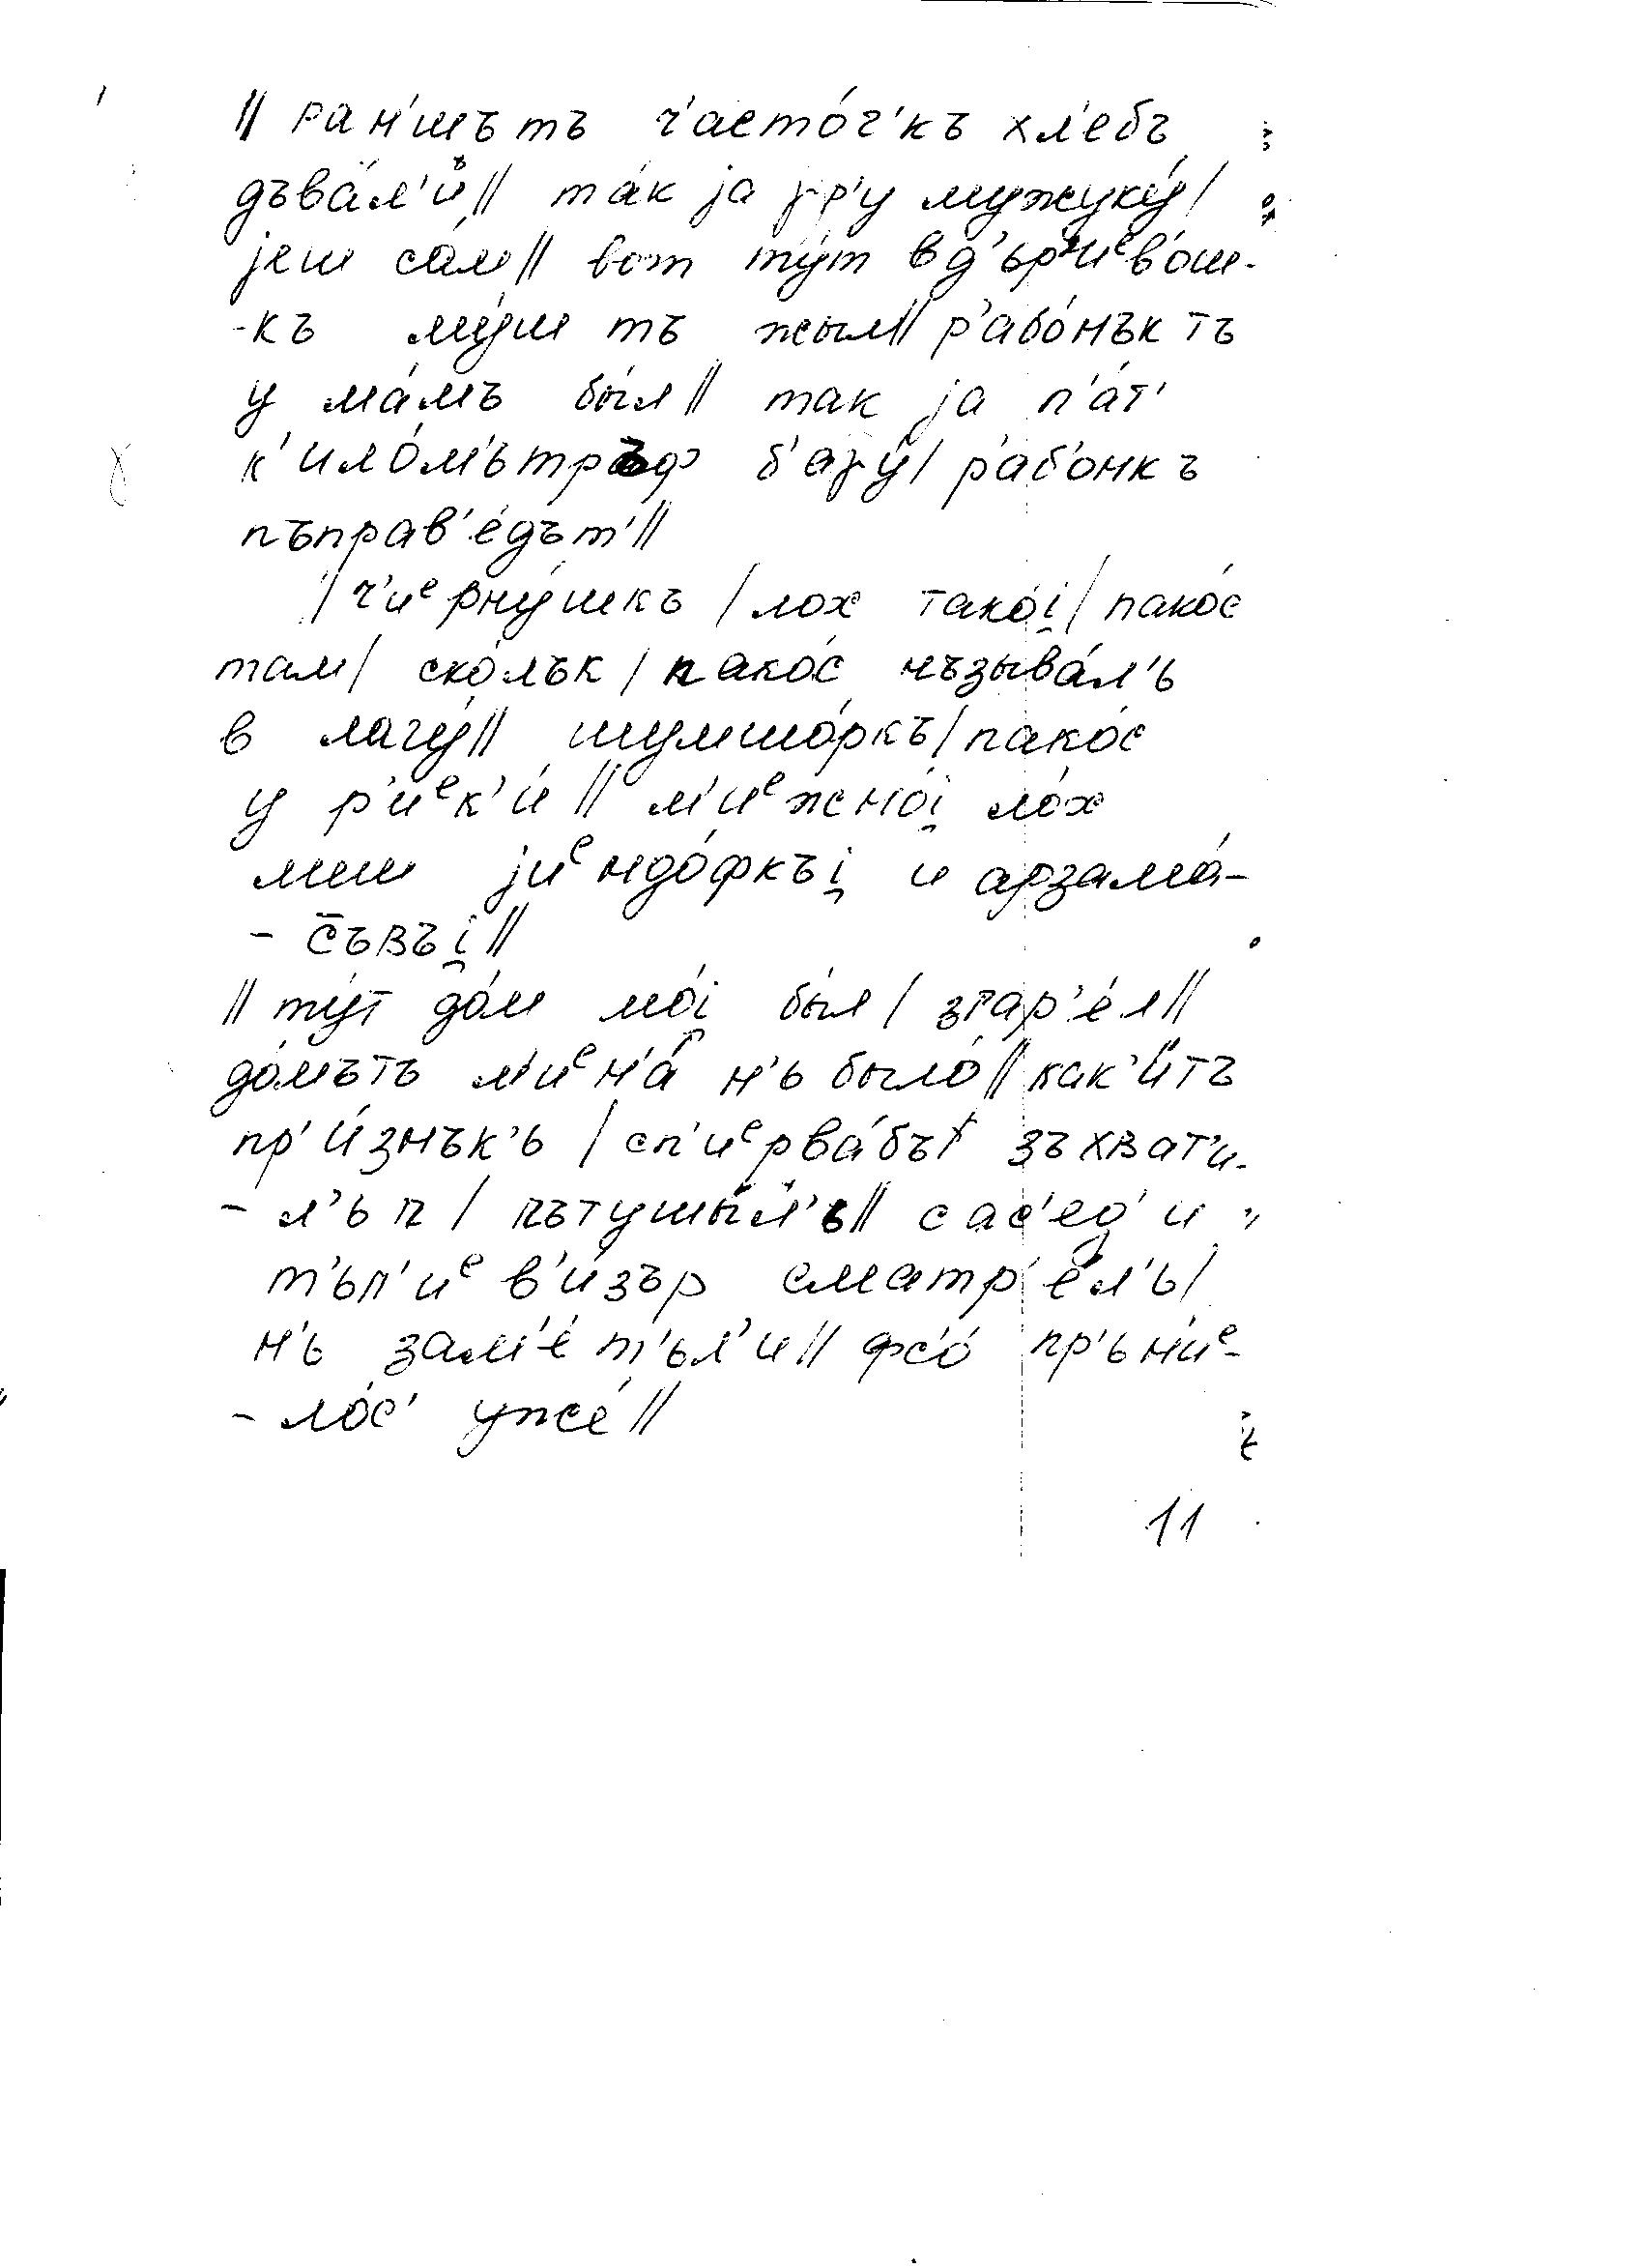 || ран'шъ тъ ч'асто́ч'къ хл'ебъ
дъва́л'и || та́к jа γр'у мужуку́ /
jеш са́м || вот ту́т в д'ър'иᵉво́ш-
-къ му́ш тъ жыл || р'аб'о́нък тъ
у ма́мъ бы́л || так jа п'а́т'
к'ило́м'ътръф б'аγу́ / р'аб'онкъ
пъправ'е́дът' ||
/ ч'иᵉрну́шкъ / лох тако́i̯ / пако́с
там / ско́лък / пако́с нъзыва́л'ь
в лагу́ || шумшо́ркъ / пако́с
у р'иᵉк'и́ || м'иᵉжно́i̯ ло́х
меш jиᵉндо́фкъi̯ и арзама́-
- с̄ъвъi̯ ||
|| ту́т до́м мо́i̯ бы́л / зγар'е́л ||
до́мътъ м'иᵉн'а́ н'ь было́ || как'и́тъ
пр'и́знък'ь / сп'иᵉрва́бы зъхват'и-
- л'ь п / пътушы́л'ь || сас'ед'и
т'ьл'иᵉв'и́зър сматр'е́л'ь /
н'ь зам'е́т'ьл'и || фс'о́ пр'ьн'иᵉ-
- ло́с' уже́ ||
11